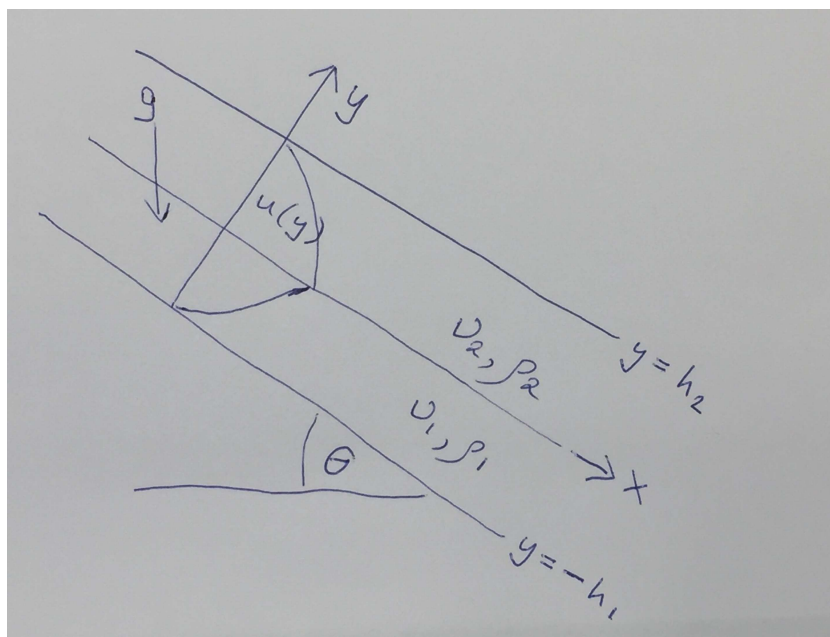 g
y
u(y)
υ₂, ρ₂
y = h₂
υ₁, ρ₁
θ
x
y = -h₁